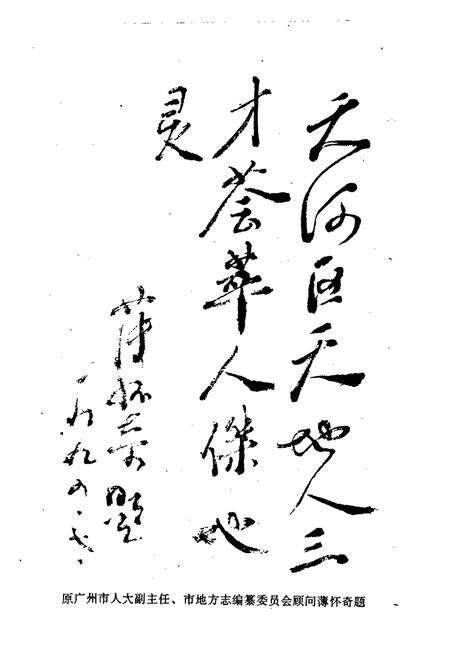 天河区天地人三
才荟萃人傑地
灵
薄怀奇题
一九九四.七.
原广州市人大副主任、市地方志编纂委员会顾问薄怀奇题